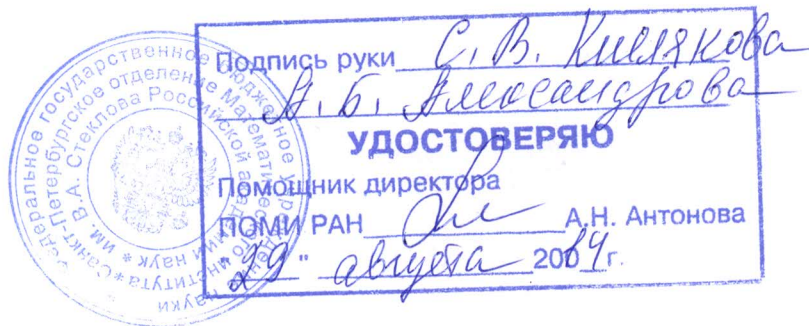 Подпись руки С. В. Кислякова
А. Б. Александрова
УДОСТОВЕРЯЮ
Помощник директора
ПОМИ РАН А.Н. Антонова
29 " августа 2014 г.
Федеральное государственное бюджетное учреждение науки
Санкт-Петербургское отделение Математического института
им. В.А. Стеклова Российской академии наук